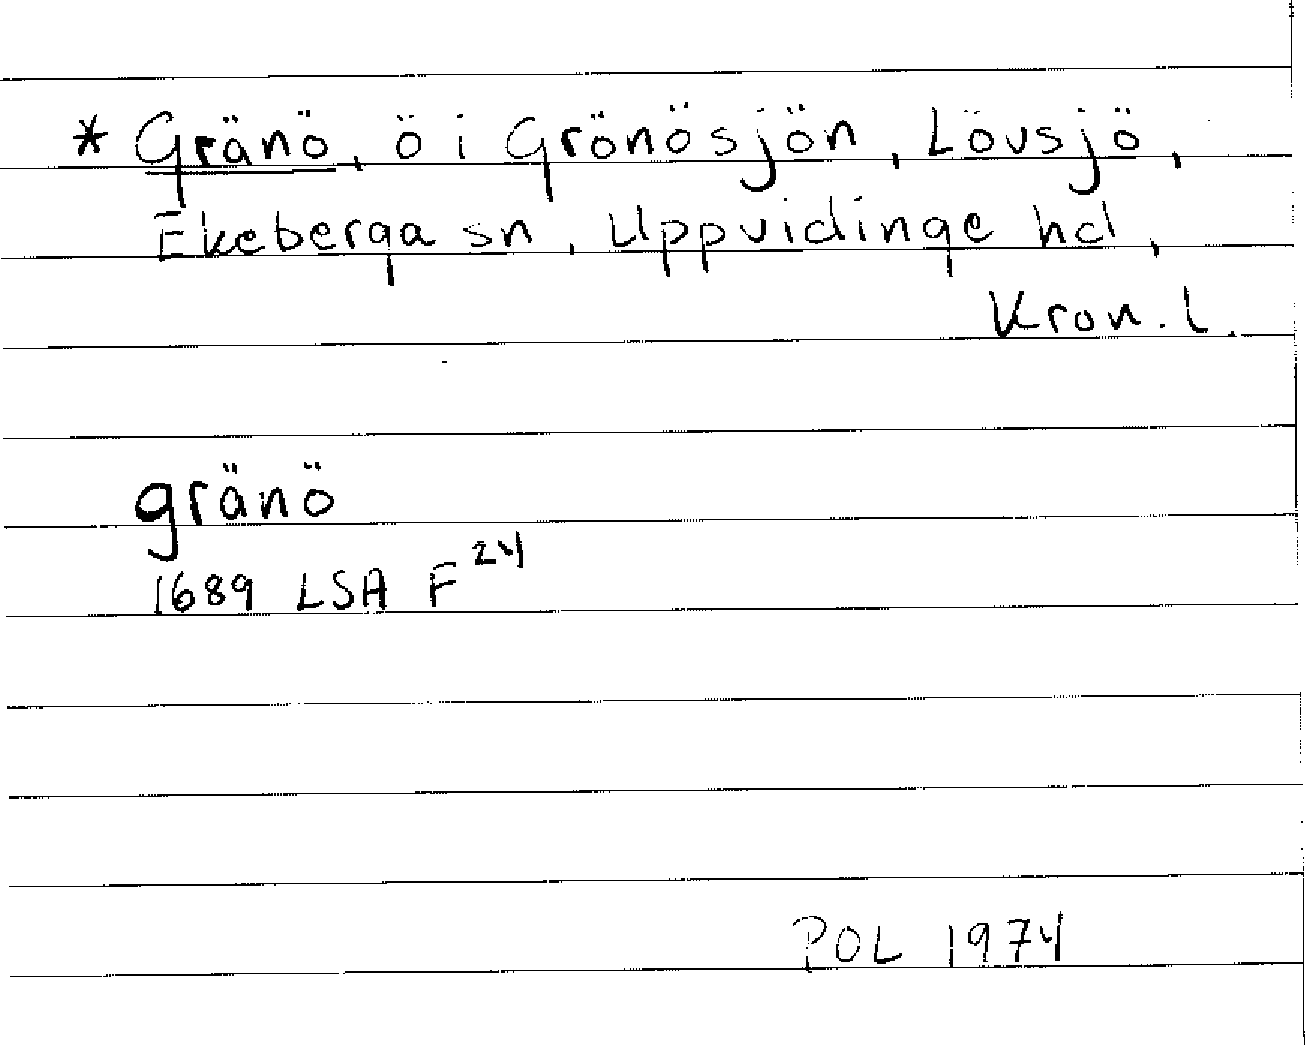 * Gränö, ö i Grönösjön, Lövsjö,
Ekeberga sn, Uppvidinge hd,
Kron. l.
gränö
1689 LSA F 24
POL 1974